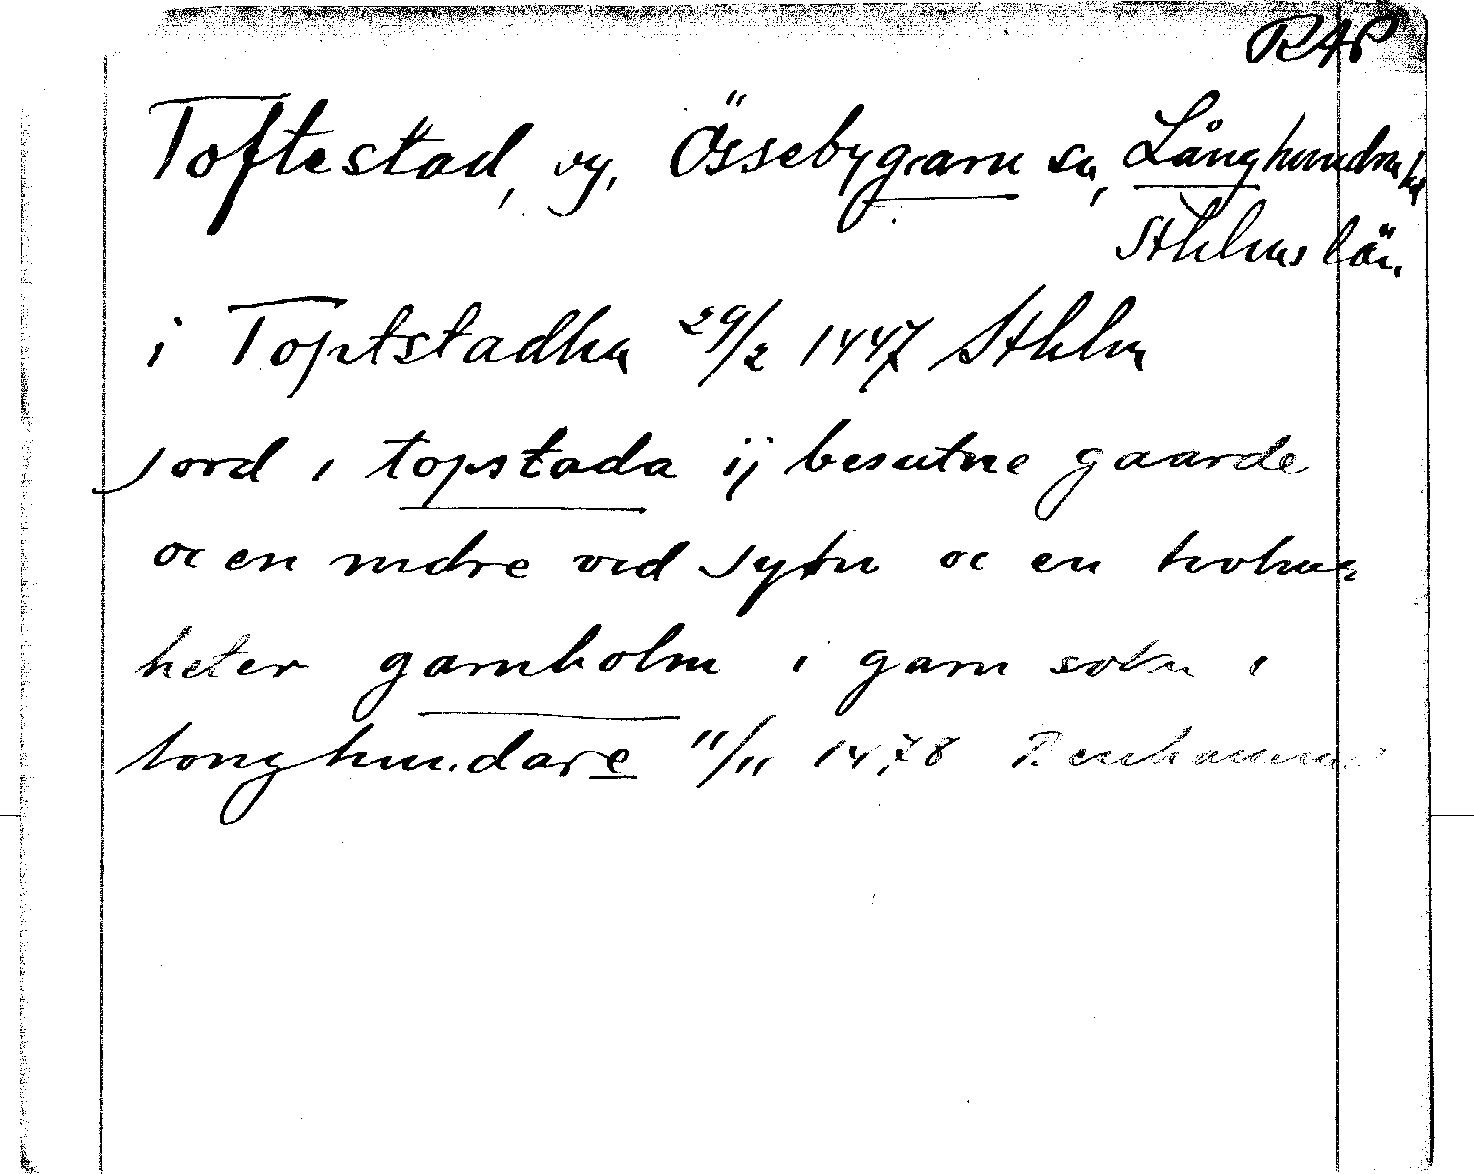 RAP
Toftestad, vg. Össebygarn sn, Långhundra hd
Sthlms län.
i Toptstadha 29/2 1447 Sthlm
jord i topstada ij besutne gaarde
oc en mdre vid syön oc en holm
heter garnholm i garn sokn i
longhundare 11/11 1478